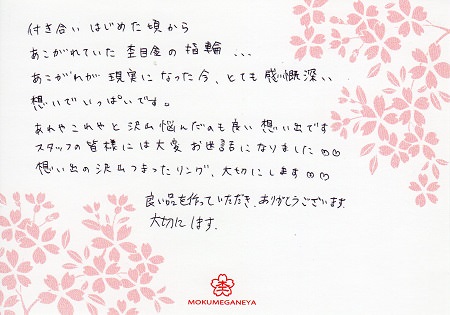 付き合いはじめた頃から
あこがれていた杢目金の指輪...
あこがれが現実になった今、とても感慨深い
想いでいっぱいです。
あれやこれやと沢山悩んだのも良い想い出です
スタッフの皆様には大変お世話になりました♡♡
想い出の沢山つまったリング、大切にします♡♡
良い品を作っていただき、ありがとうございます。
大切にします。
杢
MOKUMEGANEYA